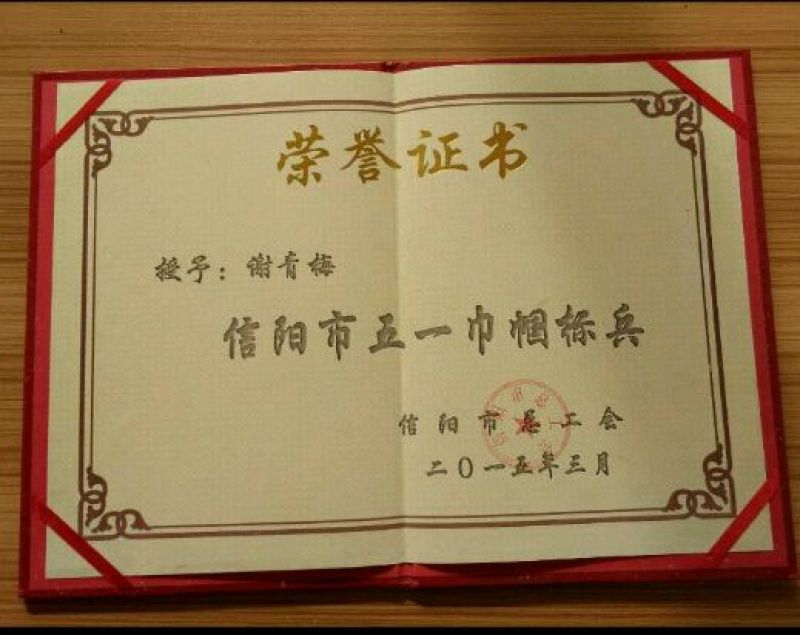 荣誉证书
授予：谢青梅
信阳市五一巾帼标兵
信阳市总工会
二〇一五年三月